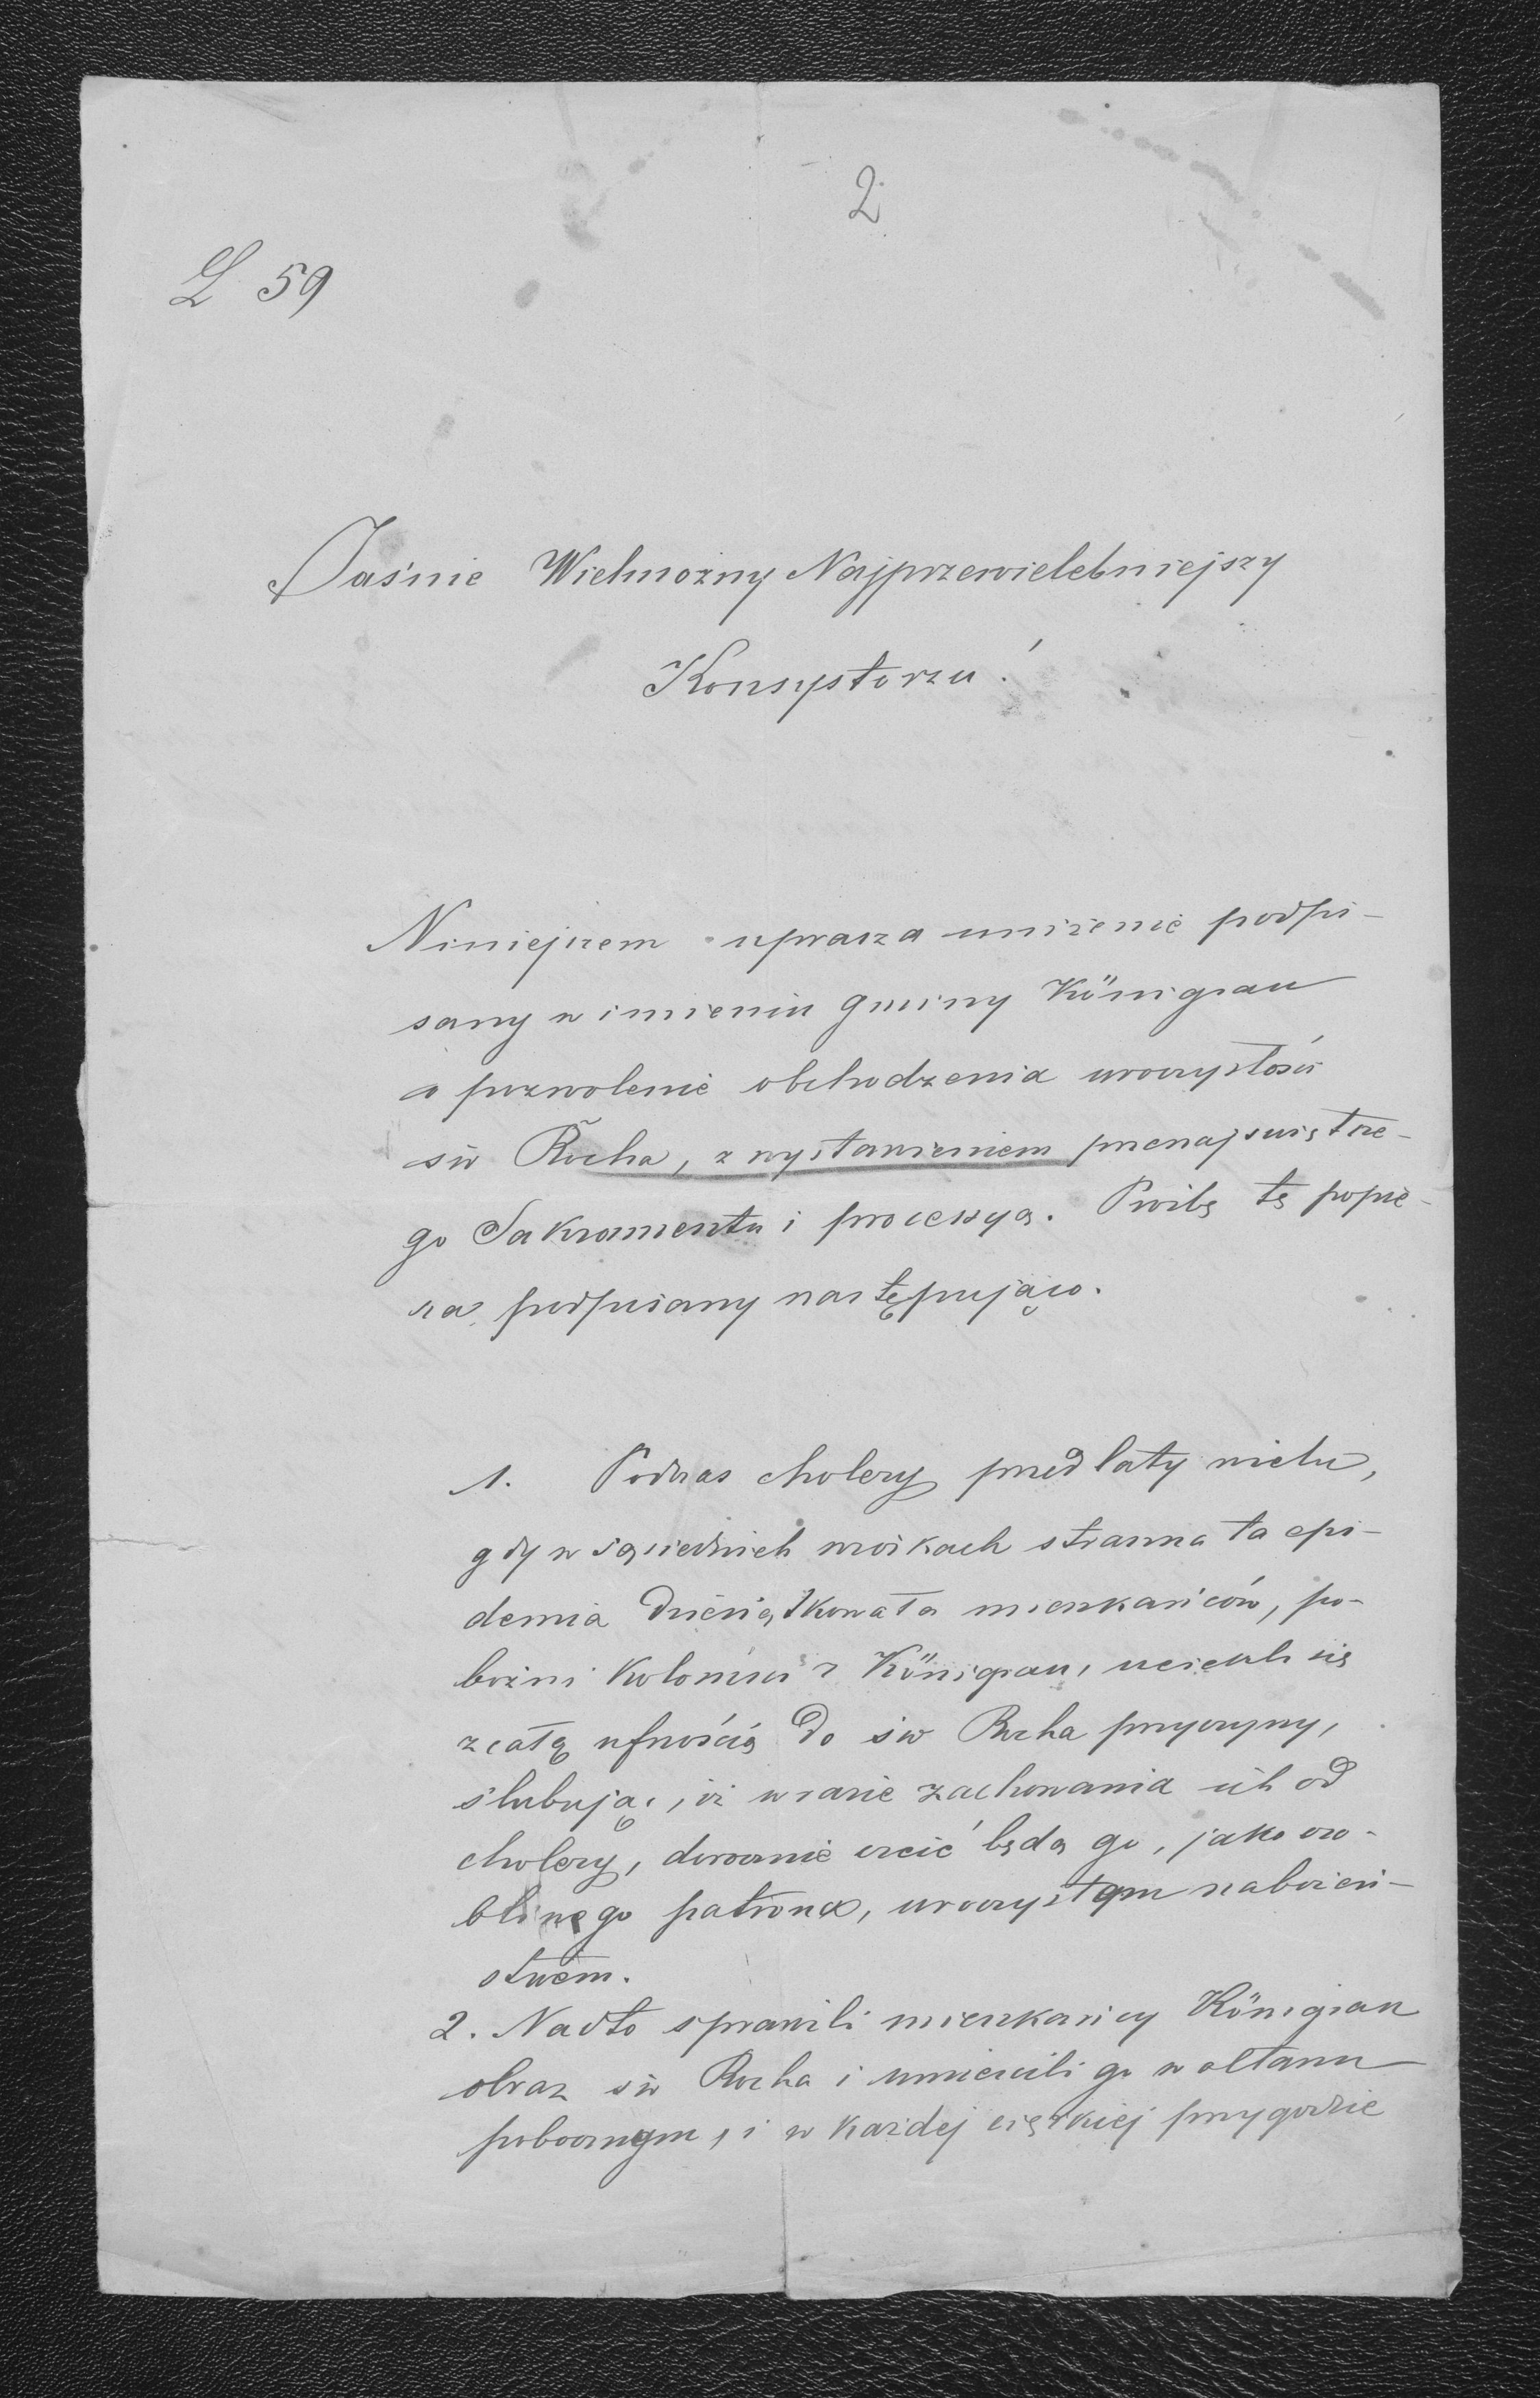 2
L 59
Jaśnie Wielmożny Najprzewielebniejszy
Konsystorzu!
Niniejszem uprasza uniżenie podpi-
sany w imieniu gminy Königsau
o pozwolenie obchodzenia uroczystości
św Rocha, z wystawieniem przenajświętsze-
go Sakramentu i procesyą. Prośbę tę popie-
ra podpisany następująco.
1. Podczas cholery przed laty wielu,
gdy w sąsiednich wioskach straszna ta epi-
demia dziesiątkowała mieszkańców, po-
bożni koloniści z Königsau, uciekli się
z całą ufnością do św Rocha przyczyny,
ślubując, iż w razie zachowania ich od
cholery, dorocznie czcić będą go, jako oso-
bliwego patrona, uroczystem nabożeń-
stwem.
2. Nadto sprawili mieszkańcy Königsau
obraz św Rocha i umieścili go w ołtarzu
pobocznym, i w każdej ciężkiej przygodzie